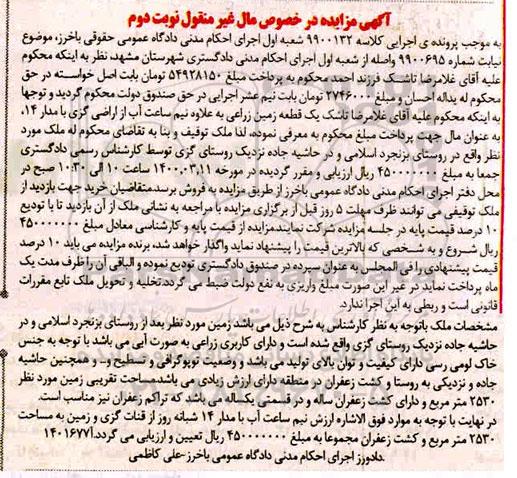 آگهی مزایده در خصوص مال غیر منقول نوبت دوم
به موجب پرونده ی اجرایی کلاسه ۹۹۰۰۱۳۲ شعبه اول اجرای احکام مدنی دادگاه عمومی حقوقی باخرز، موضوع
نیابت شماره ۹۹۰۰۶۹۵ واصله از شعبه اول اجرای احکام مدنی دادگستری شهرستان مشهد، نظر به اینکه محکوم
علیه آقای غلامرضا تاشک فرزند احمد محکوم به پرداخت مبلغ ۵۴۹۲۸۱۵۰ تومان بابت اصل خواسته در حق
محکوم له یداله احسان و مبلغ ۲۷۴۶۰۰۰ تومان بابت نیم عشر اجرایی در حق صندوق دولت محکوم گردید و توجها
به اینکه محکوم علیه آقای غلامرضا تاشک یک قطعه زمین زراعی به علاوه نیم ساعت آب از اراضی گزی با مدار ۱۴،
به عنوان مال جهت پرداخت مبلغ محکوم به معرفی نموده، لذا ملک توقیف و بنا به تقاضای محکوم له ملک مورد
نظر واقع در روستای بزنجرد اسلامی و در حاشیه جاده نزدیک روستای گزی توسط کارشناس رسمی دادگستری
جمعا به مبلغ ۴۵۰۰۰۰۰۰۰ ریال ارزیابی و مقرر گردیده در مورخه ۱۴۰۰.۰۳.۱۱ ساعت ۱۰ الی ۱۰:۳۰ صبح در
محل دفتر اجرای احکام مدنی دادگاه عمومی باخرز از طریق مزایده به فروش برسد.متقاضیان خرید جهت بازدید از
ملک توقیفی می توانند ظرف مهلت ۵ روز قبل از برگزاری مزایده با مراجعه به نشانی ملک از آن بازدید تا با تودیع
۱۰ درصد قیمت پایه در جلسه مزایده شرکت نمایند.مزایده از قیمت پایه و کارشناسی معادل مبلغ ۴۵۰۰۰۰۰۰۰
ریال شروع و به شخصی که بالاترین قیمت را پیشنهاد نماید واگذار خواهد شد، برنده مزایده می باید ۱۰ درصد
قیمت پیشنهادی را فی المجلس به عنوان سپرده در صندوق دادگستری تودیع نموده و الباقی آن را ظرف مدت یک
ماه پرداخت نماید در غیر این صورت مبلغ واریزی به نفع دولت ضبط می گردد.تخلیه و تحویل ملک تابع مقررات
قانونی است و ربطی به این اجرا ندارد.
مشخصات ملک باتوجه به نظر کارشناس به شرح ذیل می باشد زمین مورد نظر بعد از روستای بزنجرد اسلامی و در
حاشیه جاده نزدیک روستای گزی واقع شده است و دارای کاربری زراعی به صورت آبی می باشد با توجه به جنس
خاک لومی رسی دارای کیفیت و توان بالای تولید می باشد وضعیت توپوگرافی و سطیح و.. و همچنین حاشیه
جاده و نزدیکی به روستا و کشت زعفران در منطقه دارای ارزش زیادی می باشدمساحت تقریبی زمین مورد نظر
۲۵۳۰ متر مربع و دارای کشت زعفران ساله و در قسمتی یکساله می باشد که تراکم زعفران نیز مناسب است.
در نهایت با توجه به موارد فوق الاشاره ارزش نیم ساعت آب با مدار ۱۴ شبانه روز از قنات گزی و زمین به مساحت
۲۵۳۰ متر مربع و کشت زعفران مجموعا به مبلغ ۴۵۰۰۰۰۰۰۰ ریال تعیین و ارزیابی می گردد.آ۱۴۰۱۶۷۷
دادورز اجرای احکام مدنی دادگاه عمومی باخرز-علی کاظمی